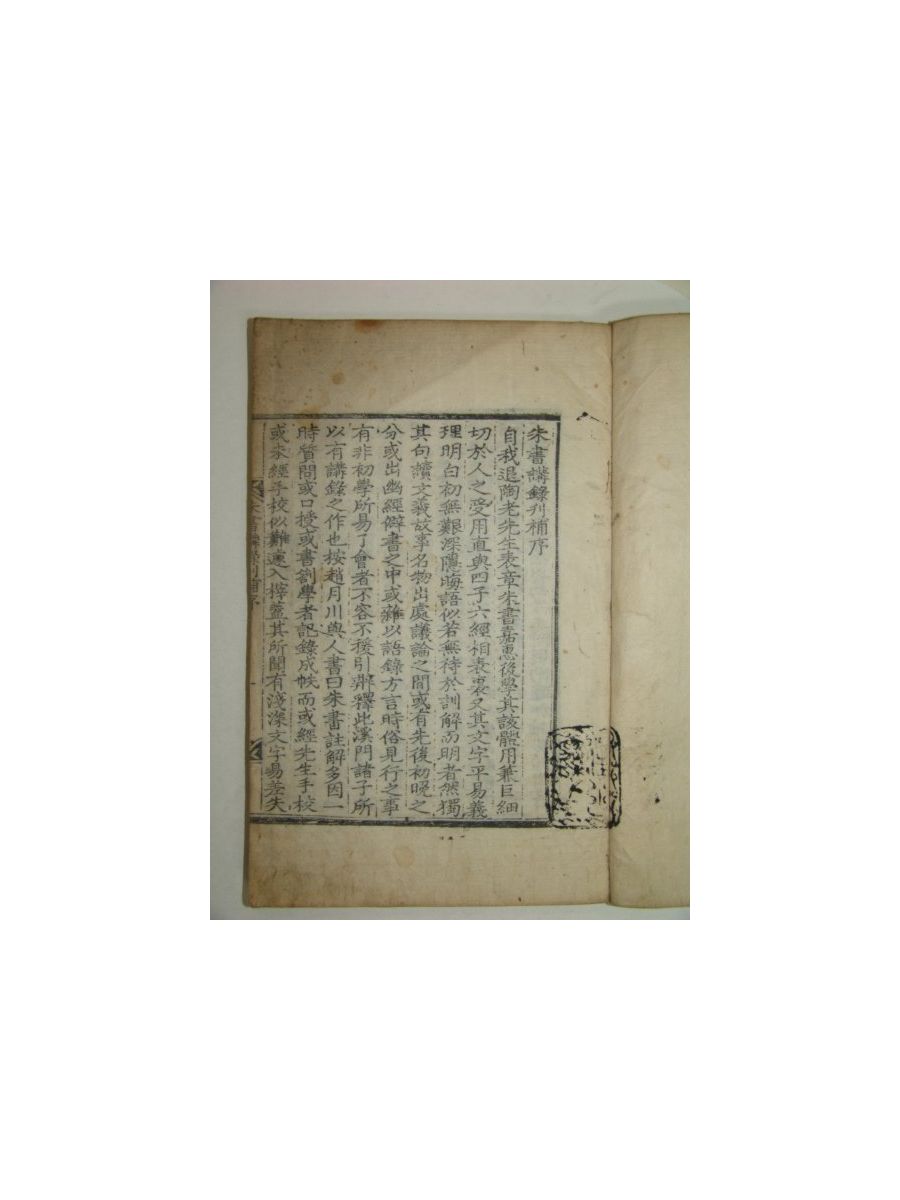 朱書講錄刊補序
自我退陶老先生表章朱書嘉惠後學其該體用兼巨細
切於人之受用直與四子六經相表裏又其文字平易義
理明白初無艱深隱晦語似若無待於訓解而明者然獨
其句讀文義故事名物出處議論之間或有先後初晚之
分或出幽經僻書之中或雜以語錄方言時俗見行之事
有非初學所易了會者不容不援引辨釋此溪門諸子所
以有講錄之作也按趙月川與人書曰朱書註解多因一
時質問或口授或書劄學者記錄成帙而或經先生手校
或未經手校似難遽入榟蓋其所聞有淺深文字易差失
朱書講錄刊補序